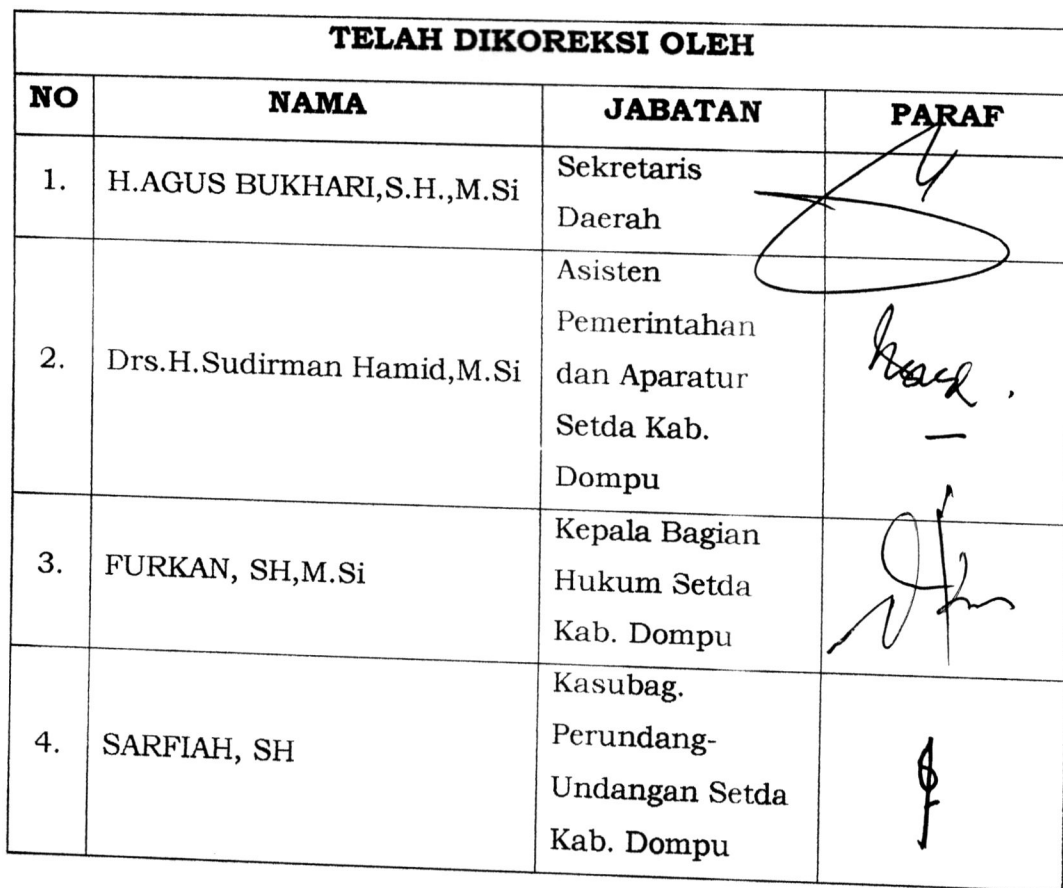 TELAH DIKOREKSI OLEH
NO NAMA JABATAN PARAF
1. H.AGUS BUKHARI,S.H.,M.Si Sekretaris
Daerah
2. Drs.H.Sudirman Hamid,M.Si Asisten
Pemerintahan
dan Aparatur
Setda Kab.
Dompu
3. FURKAN, SH,M.Si Kepala Bagian
Hukum Setda
Kab. Dompu
4. SARFIAH, SH Kasubag.
Perundang-
Undangan Setda
Kab. Dompu